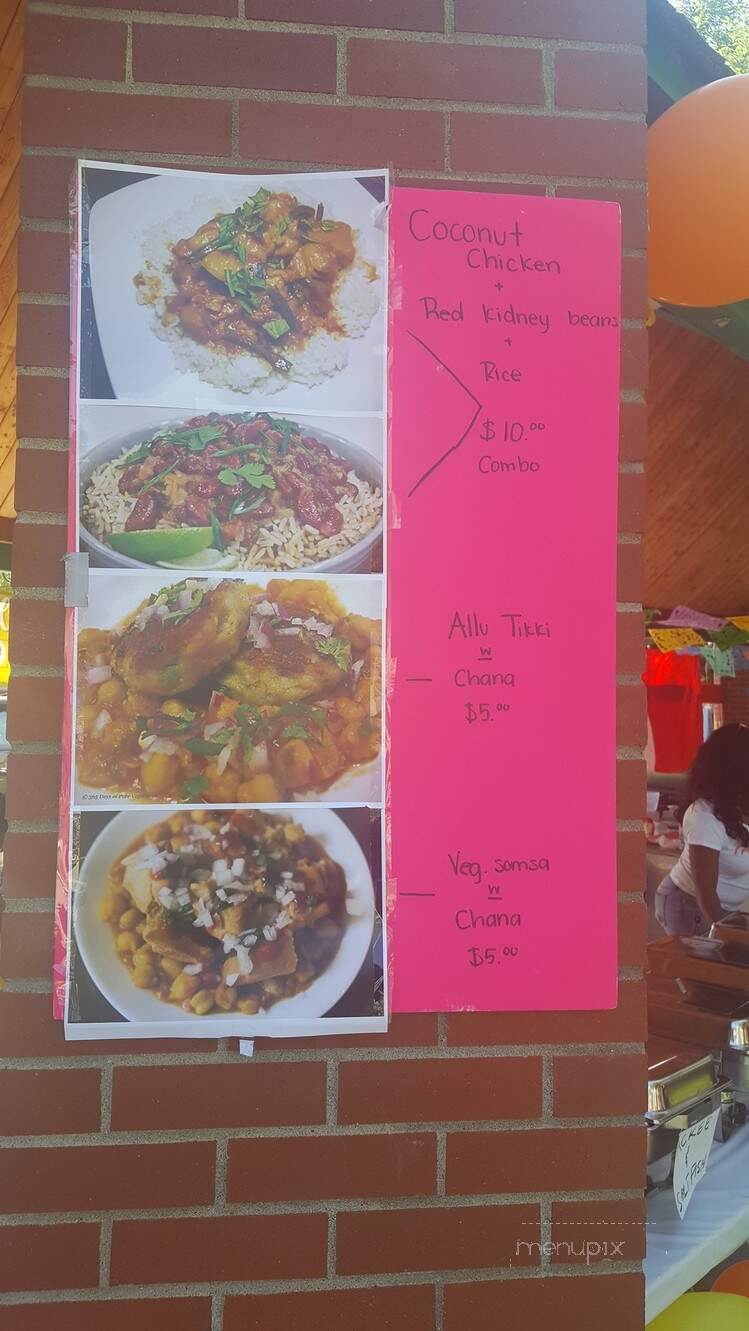 Coconut
Chicken
+
Red kidney beans
+
Rice
$10.00
Combo
Allu Tikki
w
Chana
$5.00
Veg. somsa
w
Chana
$5.00
© 365 Days of Pure Vegetarian
ACKEE
&
SALTFISH
menupix